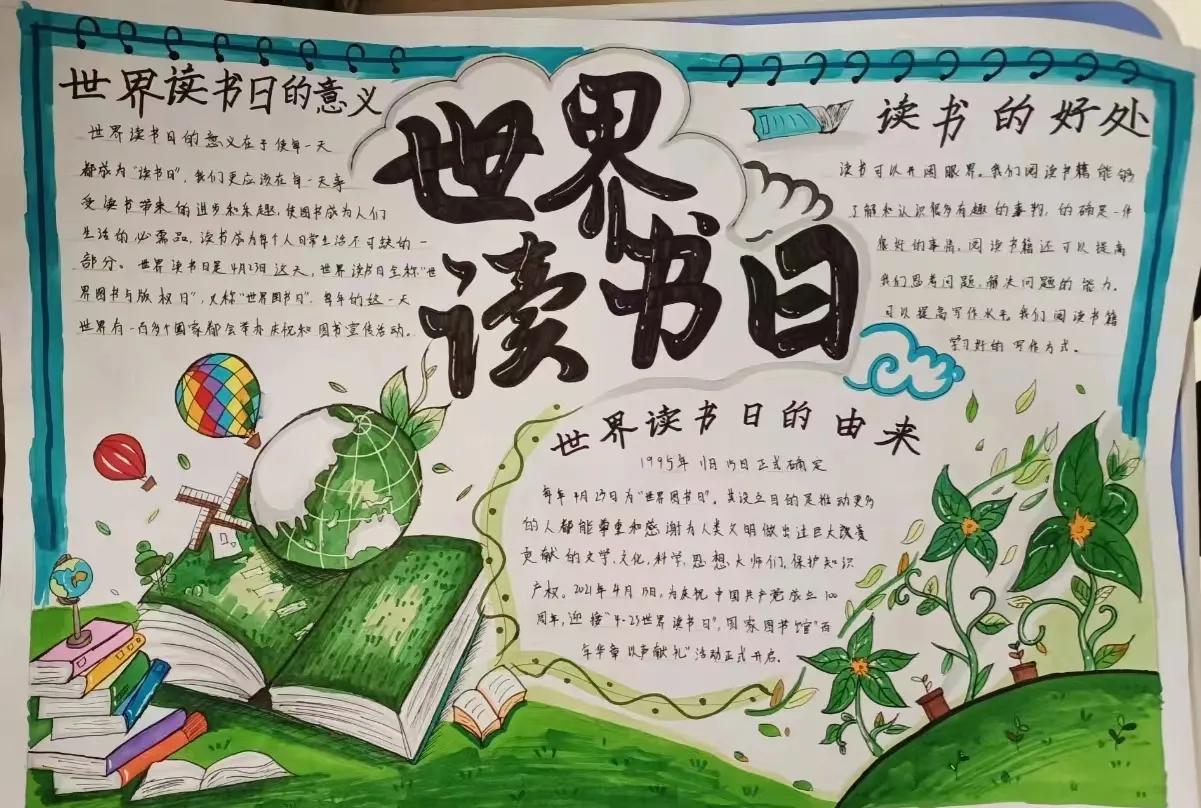 世界读书日
世界读书日的意义
世界读书日的意义在于使每一天
都成为“读书日”，我们更应该在每一天享
受读书带来的进步和乐趣，使图书成为人们
生活的必需品，读书成为每个人日常生活不可缺的一
部分。世界读书日是4月23日这天，世界读书日全称“世
界图书与版权日”，又称“世界图书日”，每年的这一天
世界有一百多个国家都会举办庆祝和图书宣传活动。
读书的好处
读书可以开阔眼界。我们阅读书籍能够
了解和认识很多有趣的事物，的确是一件
很好的事情，阅读书籍还可以提高
我们思考问题，解决问题的能力。
可以提高写作水平，我们阅读书籍
学习好的写作方式。
世界读书日的由来
1995年 日正式确定
每年4月23日为“世界图书日”。其设立目的是推动更多
的人都能尊重和感谢为人类文明做出过巨大
贡献的文学，文化，科学，思想大师们，保护知识
产权。2021年4月 日，为庆祝中国共产党成立100
周年，迎接“4·23世界读书日”，国家图书馆“百
年华章 以声献礼”活动正式开启。